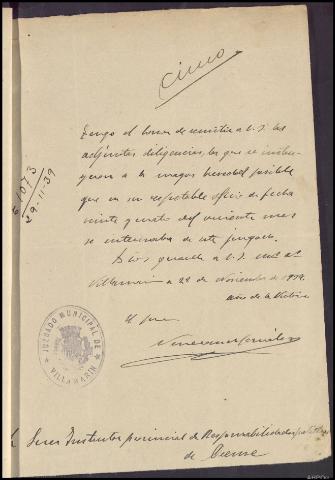 Cinco
Tengo el honor de remitir a V. S. las
adjuntas diligencias, las que se
a la mayor brevedad posible
que en su respetable oficio de fecha
veinte y cuatro del
se interesaba de este juzgado.
Dios guarde a V. S.
Villamarin a 22 de Noviembre de 1939.
Año de la Victoria
El Juez
JUZGADO MUNICIPAL DE
VILLAMARIN
61073
29-11-39
Señor Instructor provincial de Responsabilidades
de Orense